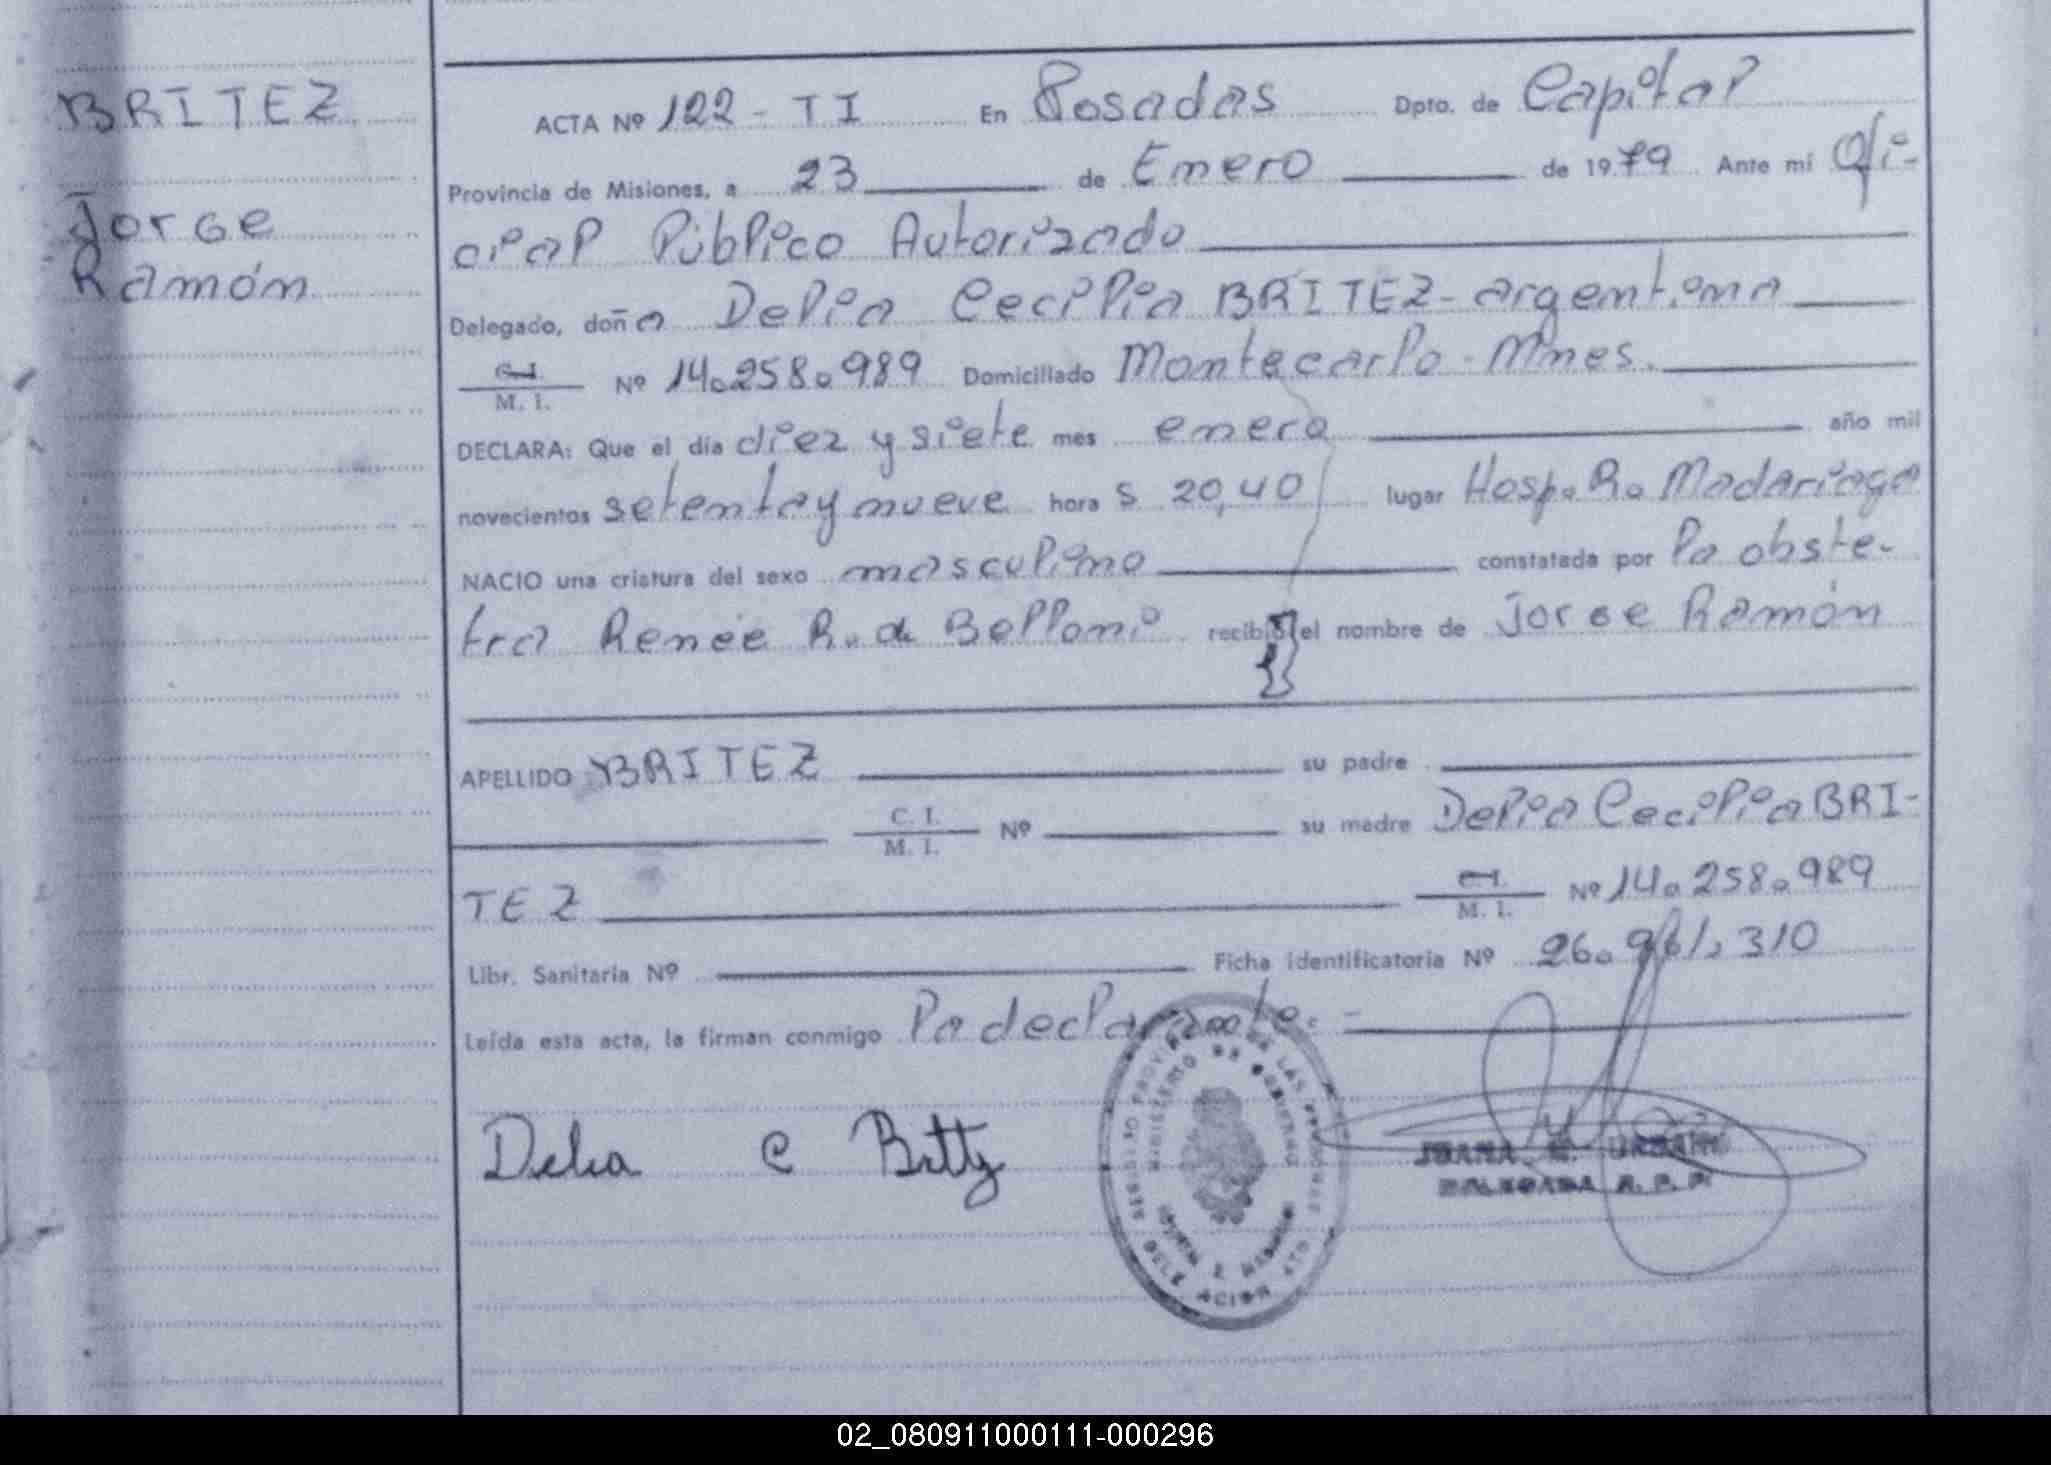 BRITEZ
Jorge
Ramón
ACTA Nº 122 - TI En Posadas Dpto. de Capital
Provincia de Misiones, a 23 de Enero de 1979 Ante mí Ofi-
cial Público Autorizado
Delegado, doña Delia Cecilia BRITEZ - argentina
C. I. / M. I. Nº 14.258.989 Domiciliado Montecarlo - Mnes.
DECLARA: Que el día diez y siete mes enero año mil
novecientos setenta y nueve hora s 20,40 lugar Hosp. R. Madariaga
NACIO una criatura del sexo masculino constatada por la obste-
tra Renée R. de Belloni recibió el nombre de Jorge Ramón
APELLIDO BRITEZ su padre
C. I. / M. I. Nº su madre Delia Cecilia BRI-
TEZ C. I. / M. I. Nº 14.258.989
Libr. Sanitaria Nº Ficha identificatoria Nº 26.961.310
Leída esta acta, la firman conmigo la declarante. -
Delia C Brítez
JUANA
DELEGADA R. P. P.
02_080911000111-000296